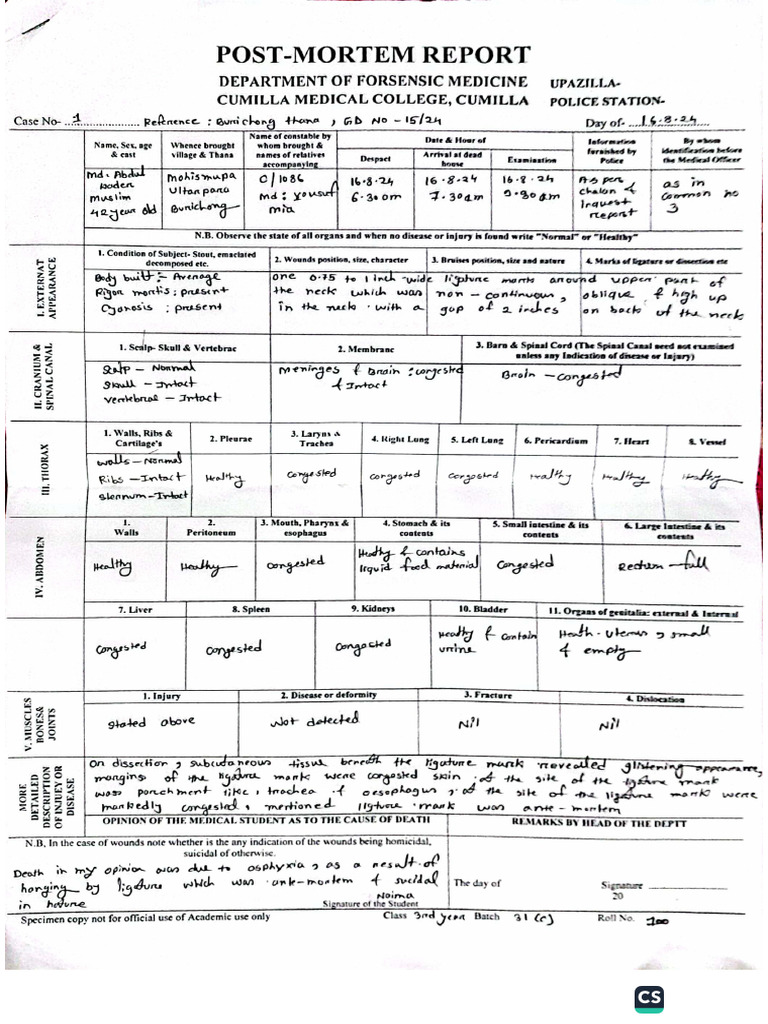 POST-MORTEM REPORT
DEPARTMENT OF FORSENSIC MEDICINE UPAZILLA-
CUMILLA MEDICAL COLLEGE, CUMILLA POLICE STATION-
Case No- 1 Reference: Burichong thana, GD No - 15/24 Day of- 16-8-24
Name, Sex, age & cast
Whence brought village & Thana
Name of constable by whom brought & names of relatives accompanying
Date & Hour of
Despact
Arrival at dead house
Examination
Information furnished by Police
By whom identification before the Medical Officer
Md: Abdul Kader Muslim 42 year old
Mohismupa Uttarpara Burichong
C/1086 Md: Yousuf mia
16.8.24 6.30am
16.8.24 7.30am
16.8.24 9.30am
As per chalan & Inquest report
as in common no 3
N.B. Observe the state of all organs and when no disease or injury is found write "Normal" or "Healthy"
I. EXTERNAT APPEARANCE
1. Condition of Subject- Stout, emaciated decomposed etc.
2. Wounds position, size, character
3. Bruises position, size and nature
4. Marks of ligature or dissection etc
Body built:- Average
Rigor mortis: present
Cyanosis: present
one 0.75 to 1 inch-wide ligature mark around upper part of
the neck which was non-continuous, oblique & high up
in the neck with a gap of 2 inches on back of the neck
II. CRANIUM & SPINAL CANAL
1. Scalp- Skull & Vertebrac
2. Membranc
3. Barn & Spinal Cord (The Spinal Canal need not examined unless any Indication of disease or Injury)
Scalp - Normal
Skull - Intact
Vertebral - Intact
Meninges & Brain: congested & Intact
Brain - congested
III. THORAX
1. Walls, Ribs & Cartilage's
2. Pleurae
3. Larynx & Trachea
4. Right Lung
5. Left Lung
6. Pericardium
7. Heart
8. Vessel
Walls - Normal
Ribs - Intact
Sternum - Intact
Healthy
congested
congested
congested
Healthy
Healthy
Healthy
IV. ABDOMEN
1. Walls
2. Peritoneum
3. Mouth, Pharynx & esophagus
4. Stomach & its contents
5. Small intestine & its contents
6. Large Intestine & its contents
Healthy
Healthy
congested
Healthy & contains liquid food material
congested
Rectum - full
7. Liver
8. Spleen
9. Kidneys
10. Bladder
11. Organs of genitalia: external & Internal
congested
congested
congected
Healthy & contain urrine
Heath. uterus, small & empty
V. MUSCLES BONES& JOINTS
1. Injury
2. Disease or deformity
3. Fracture
4. Dislocation
stated above
Not detected
Nil
Nil
MORE DETAILED DESCRIPTION OF INJUEY OR DISEASE
On dissection, subcutaneous tissue beneath the ligature mark revealed glistening appearance,
margins of the ligature mark were congested skin at the site of the ligature mark
was parchment like, trachea & oesophagus, at the site of the ligature mark were
markedly congested, mentioned ligture mark was ante-mortem
OPINION OF THE MEDICAL STUDENT AS TO THE CAUSE OF DEATH
REMARKS BY HEAD OF THE DEPTT
N.B. In the case of wounds note whether is the any indication of the wounds being homicidal, suicidal of otherwise.
Death in my opinion was due to asphyxia, as a result of
hanging by ligature which was ante-mortem & sucidal
in nature
Naima
Signature of the Student
The day of 20
Signature
Specimen copy not for official use of Academic use only Class 3rd year Batch 31 (c) Roll No. 100
CS